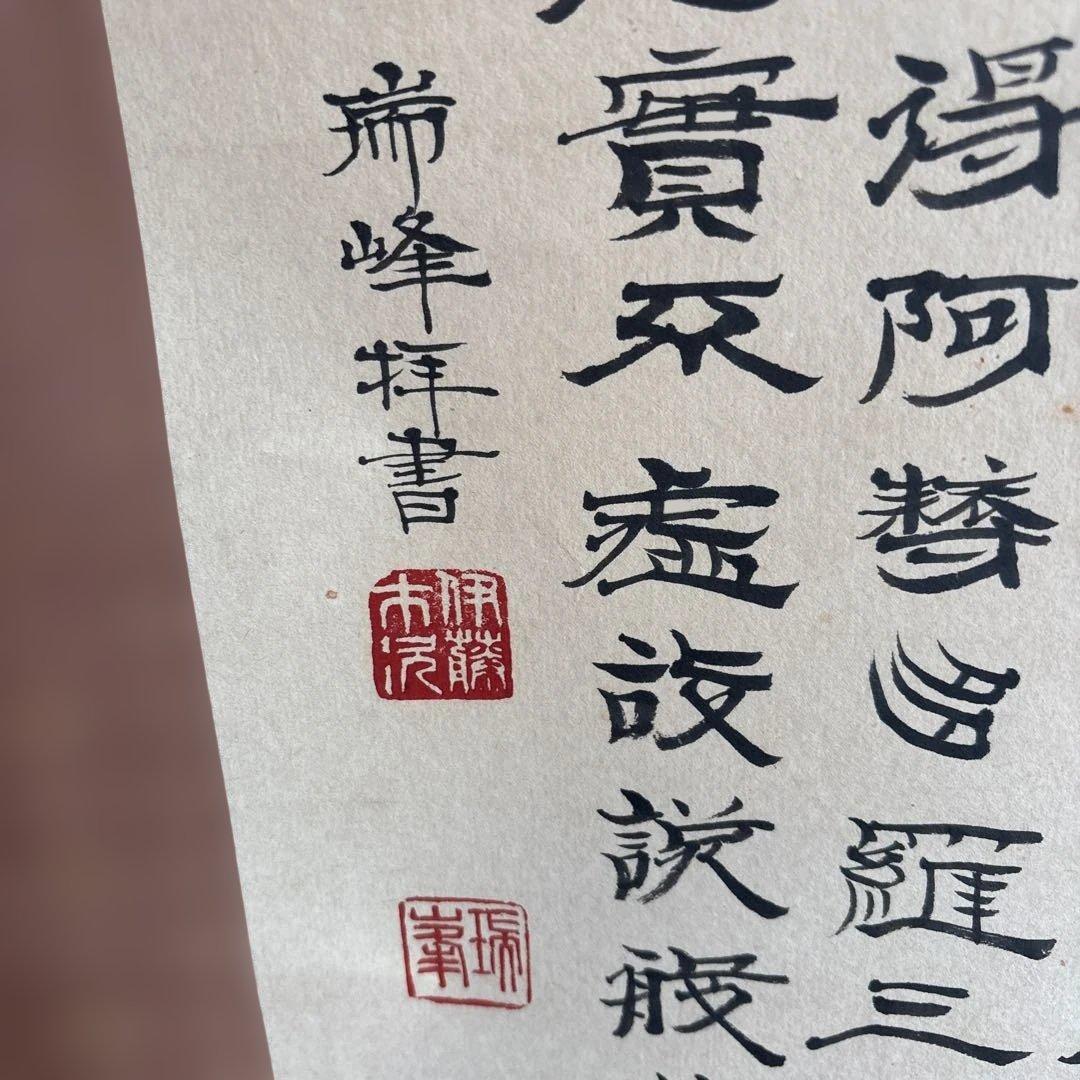 得阿耨多羅三
實不虛故說般
瑞峰拝書
伊藤
瑞峯